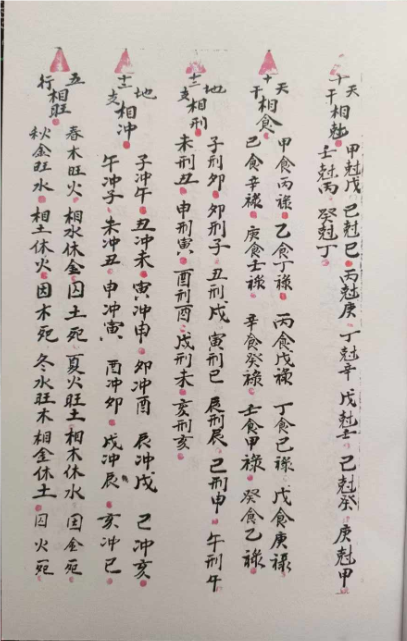 天十干相尅
甲尅戊 己尅巳 丙尅庚 丁尅辛 戊尅壬 己尅癸 庚尅甲
壬尅丙 癸尅丁
天十干相食
甲食丙禄 乙食丁禄 丙食戊禄 丁食己禄 戊食庚禄
己食辛禄 庚食壬禄 辛食癸禄 壬食甲禄 癸食乙禄
地十二支相刑
子刑卯 卯刑子 丑刑戌 寅刑巳 辰刑辰 己刑申 午刑午
未刑丑 申刑寅 酉刑酉 戌刑未 亥刑亥
地十二支相冲
子冲午 丑冲未 寅冲申 卯冲酉 辰冲戌 己冲亥
午冲子 未冲丑 申冲寅 酉冲卯 戌冲辰 亥冲巳
五行相旺
春木旺火 相水休金 囚土死 夏火旺土 相木休水 囚金死
秋金旺水 相土休火 因木死 冬水旺木 相金休土 囚火死